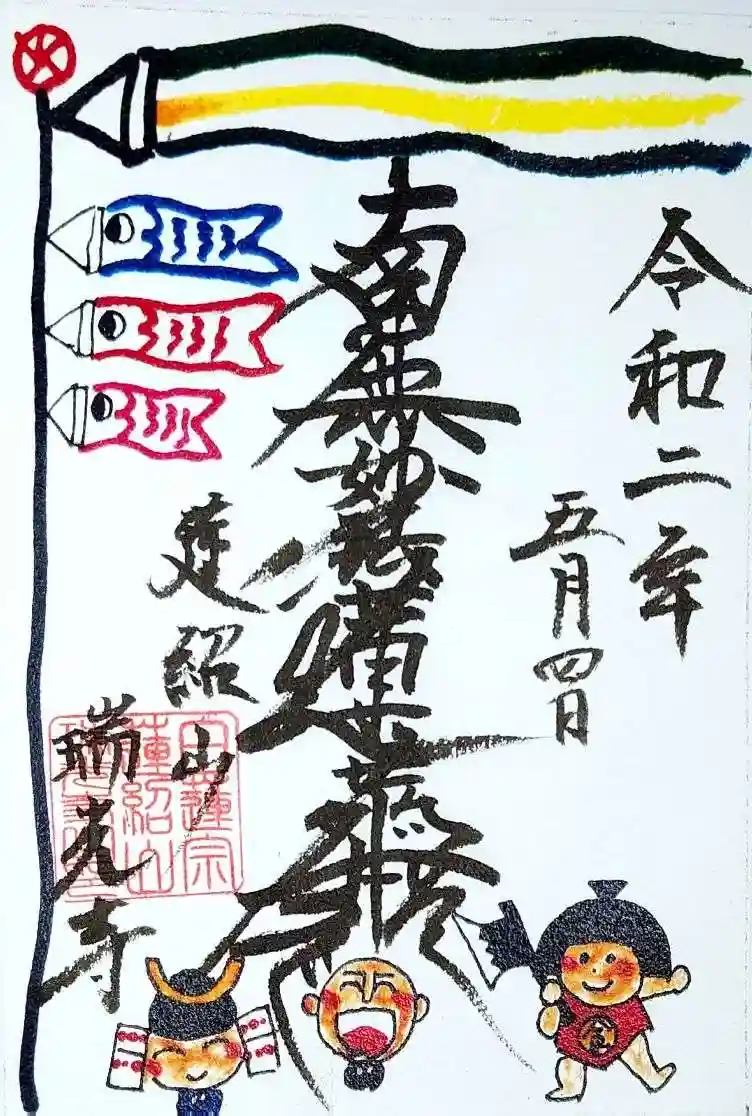 令和二年
五月四日
南無妙法蓮華経
蓮紹山
瑞光寺
日蓮宗
蓮紹山
瑞光寺
金